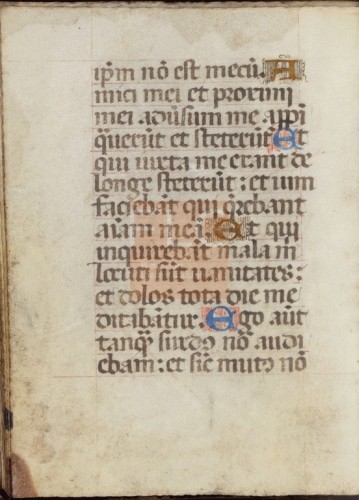 ip̄m nō est mecū. A
mici mei et proximi
mei adūsum me appi
q̄uerūt et steterūt Et
qui iuxta me erant de
longe steterūt : et uim
faciebāt qui q̄rebant
aīam meā. Et qui
inquirebāt mala m̄
locuti sūt uanitates :
et dolos tota die me
ditabātur. Ego aūt
tanq̄ surdꝰ nō audi
ebam : et sic̄ mutꝰ nō